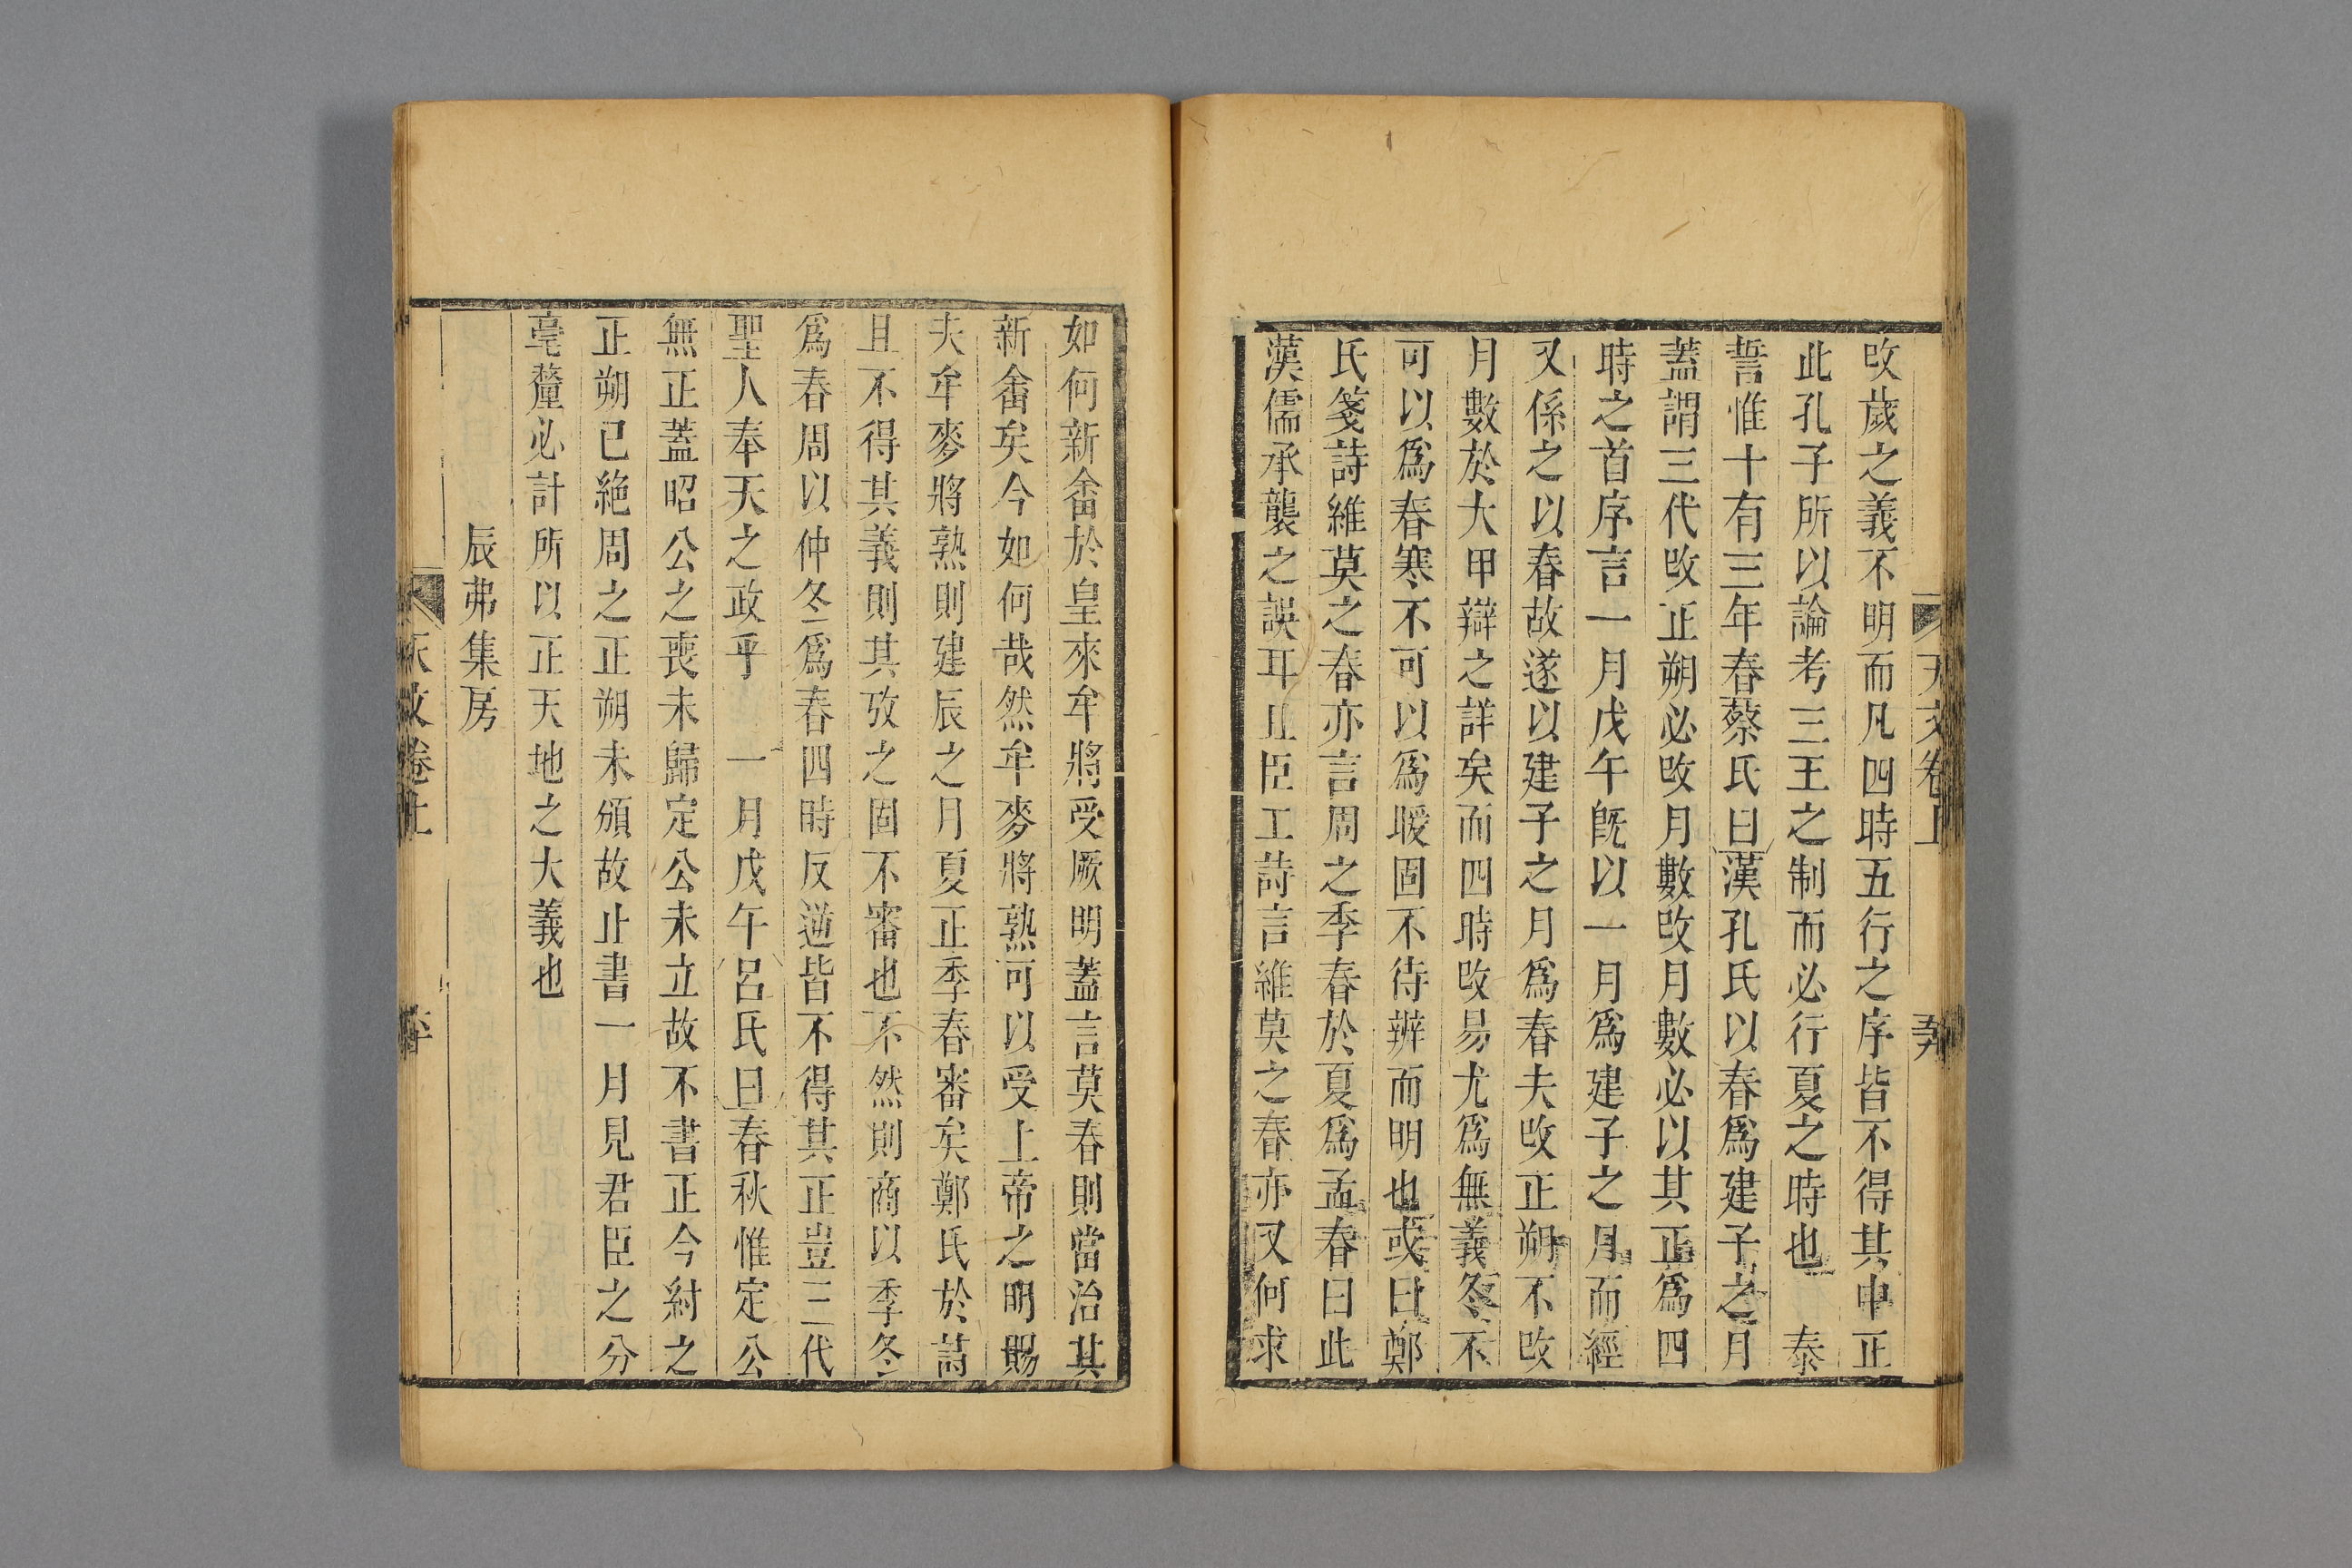 天文卷上
改歲之義不明而凡四時五行之序皆不得其中正
此孔子所以論考三王之制而必行夏之時也　泰
誓惟十有三年春蔡氏曰漢孔氏以春爲建子之月
蓋謂三代改正朔必改月數改月數必以其正爲四
時之首序言一月戊午旣以一月爲建子之月而經
又係之以春故遂以建子之月爲春夫改正朔不改
月數於大甲辯之詳矣而四時改易尤爲無義冬不
可以爲春寒不可以爲暖固不待辨而明也或曰鄭
氏箋詩維莫之春亦言周之季春於夏爲孟春曰此
漢儒承襲之誤耳且臣工詩言維莫之春亦又何求
如何新畬於皇來牟將受厥明蓋言莫春則當治其
新畬矣今如何哉然牟麥將熟可以受上帝之明賜
夫牟麥將熟則建辰之月夏正季春審矣鄭氏於詩
且不得其義則其攷之固不審也不然則商以季冬
爲春周以仲冬爲春四時反逆皆不得其正豈三代
聖人奉天之政乎　一月戊午呂氏曰春秋惟定公
無正蓋昭公之喪未歸定公未立故不書正今紂之
正朔已絕周之正朔未頒故止書一月見君臣之分
毫釐必計所以正天地之大義也
辰弗集房
天文卷上